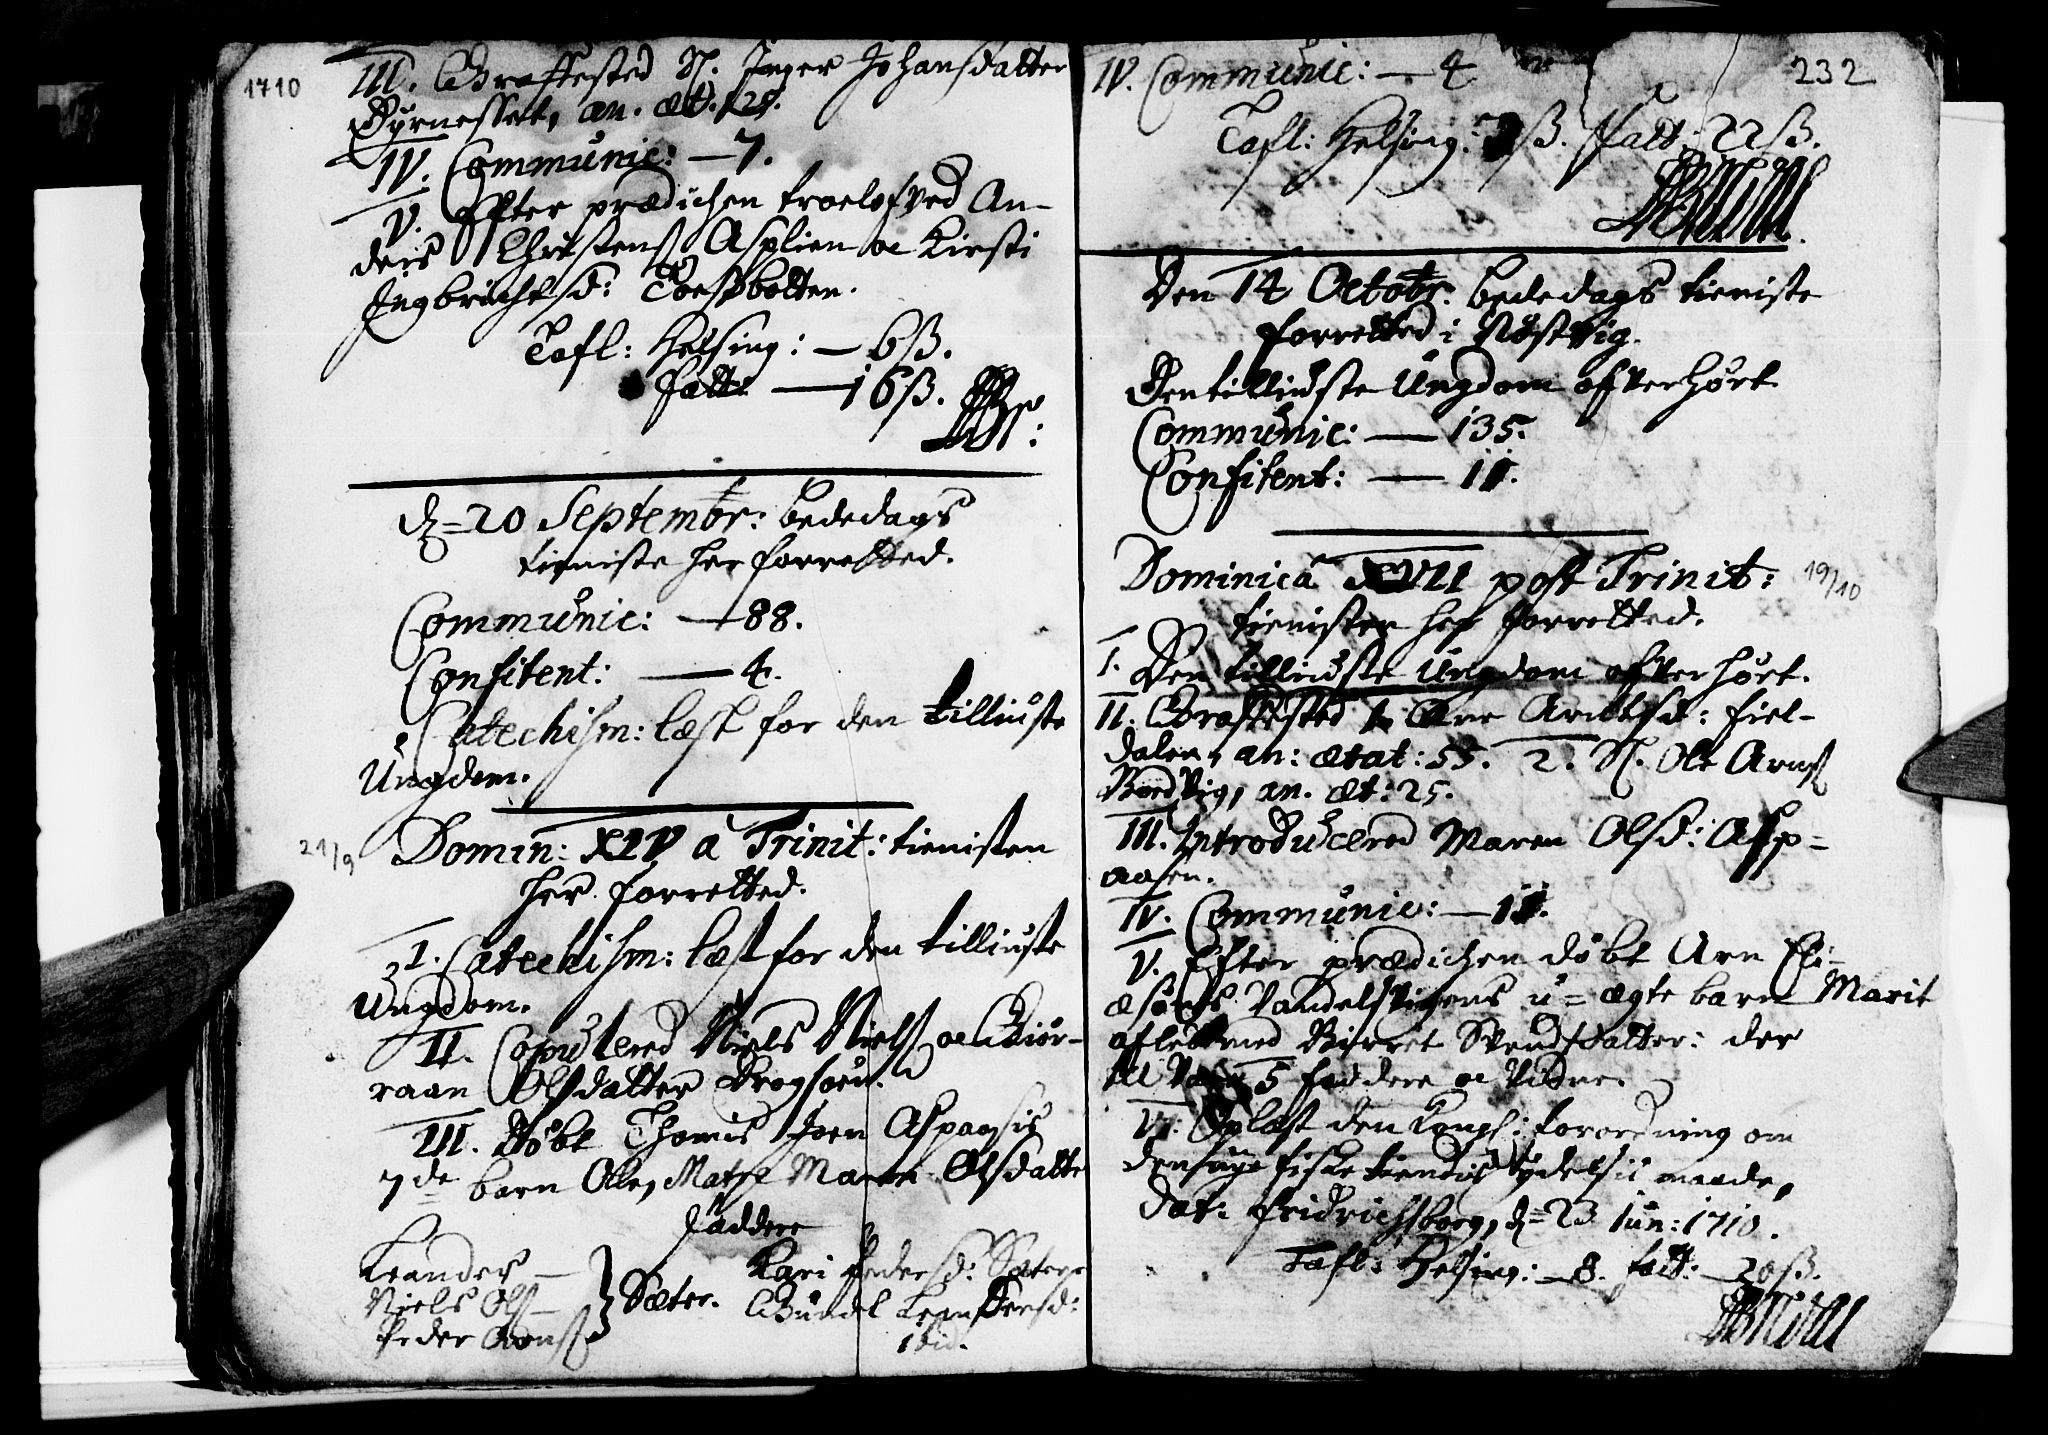 1710
III. Graffested Sl. Inger Johansdatter
Øyrnesset, an. æt. 28.
IV. Communic: — 7.
V. Efter prædichen troelofved An-
ders Christens Asplien oc Kirsti
Ingbrichtsd:
Tafl: Helsing: — 6ß.
fatt: — 16ß.
dz = 20 Septembr: bededags
tieniste her forretted.
Communic: — 88.
Confitent: — 4.
Catechism: læst for den tilliuste
Ungdom.
21/9
Domin: XIV a Trinit: tienisten
her forretted.
I. Catechism: læst for den tilliuste
Ungdom.
II. Copulered Niels Niels oc Giør-
raan Olsdatter
III. Døbt Thomis Joen Aspaasis
7de barn Ole, Matz Maren Olsdatter
faddere
Leander —
Niels Ols —
Peder Arens
Sæter.
Kari Pedersd: Sæter
Gundel Leandersd:
ibid.
232
IV. Communic: — 4
Tafl: Helsing: ß. fatt: 22ß.
Den 14 Octobr. bededags tieniste
forretted i Nøstvig.
Den tilliuste Ungdom ofverhørt
Communic: — 135.
Confitent: — 11.
Dominica XVII post Trinit:
19/10
tienisten her forretted.
I. Den tilliuste Ungdom ofverhørt.
II. Graffested 1. Ane Arntsd: Fiel-
dalen, an: ætat: 55. 2. Sl. Ole Arens
Bordvig, an. æt: 25.
III. Introducered Maren Olsd: Asp-
aasen.
IV. Communic: — 11.
V. Efter prædichen døbt Arn Eli-
æsøns Vandelsvigens u = ægte barn Marit
aflet med Birret Svendsdatter: der
til vare 5 faddere oc vidne.
VI. Oplæst den Kongl: forordning om
fiske tiendis ydelsis maade,
Dat: Fridrichsborg, d = 23 Iun: 1710.
Tafl: Helsing: — 8. fatt: — 20ß.